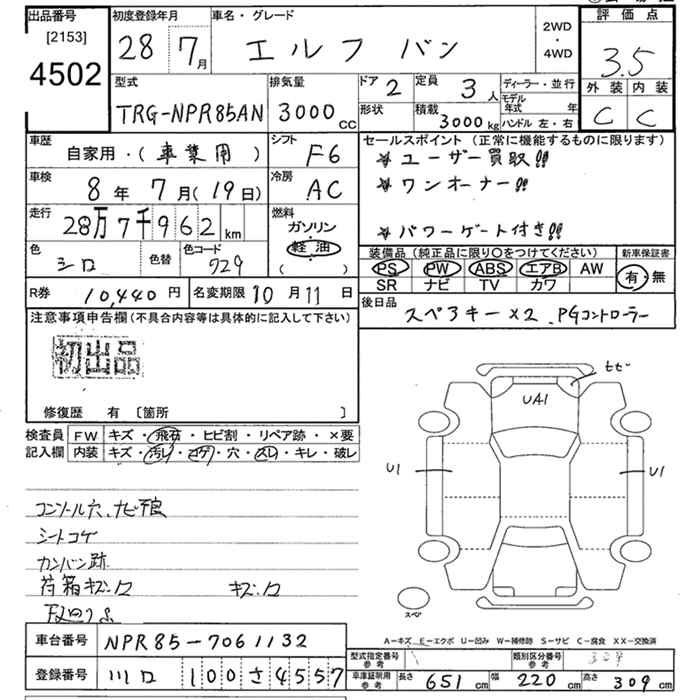 出品番号
[2153]
4502
初度登録年月
28年 7月
車名・グレード
エルフ バン
2WD
・
4WD
評価点
3.5
外装 内装
C C
型式
TRG-NPR85AN
排気量
3000cc
ドア 2
定員 3人
形状
積載 3000kg
ディーラー・並行
モデル年式 年
ハンドル 左・右
車歴
自家用・(事業用)
シフト
F6
車検
8年 7月(19日)
冷房
AC
走行
28万7千962km
燃料
ガソリン
・
軽油
( )
色
シロ
色替
色コード
729
R券 10,440円
名変期限 10月11日
セールスポイント (正常に機能するものに限ります)
★ユーザー買取!!
★ワンオーナー!!
★パワーゲート付き!!
装備品(純正品に限り〇をつけてください)
PS PW ABS エアB AW
SR ナビ TV カワ
新車保証書
有・無
後日品
スペアキー×2、PGコントローラー
注意事項申告欄(不具合内容等は具体的に記入して下さい)
初出品
修復歴 有 〔箇所 〕
検査員
記入欄
FW キズ・飛石・ヒビ割・リペア跡・×要
内装 キズ・汚レ・コゲ・穴・スレ・キレ・破レ
コンソール穴、ナビ不良
シートコゲ
カンバン跡
荷箱キズ、凹 キズ、凹
ヒビ
UA1
U1
U1
スペア
A−キズ E−エクボ U−凹み W−補修跡 S−サビ C−腐食 XX−交換済
車台番号 NPR85-7061132
登録番号 川口 100さ4557
型式指定番号
参考
類別区分番号
参考
車庫証明用
参考
長さ 651cm 幅 220cm 高さ 309cm